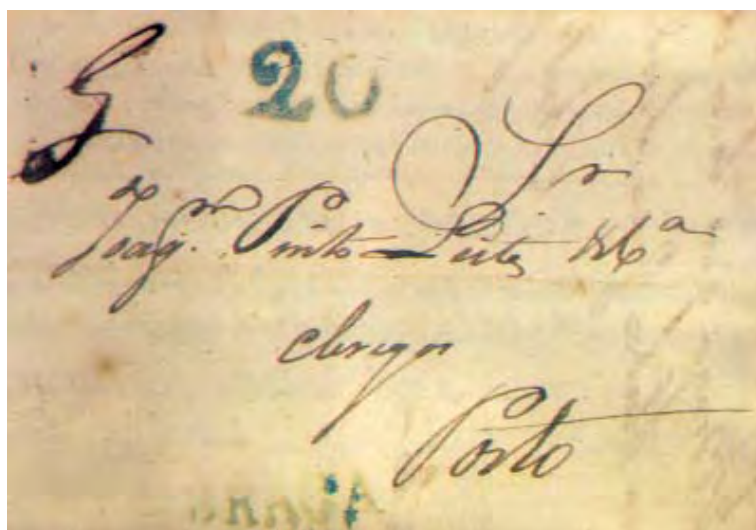 20
Sr
Joaqm. Pinto Leite & Ca
Clerigos
Porto